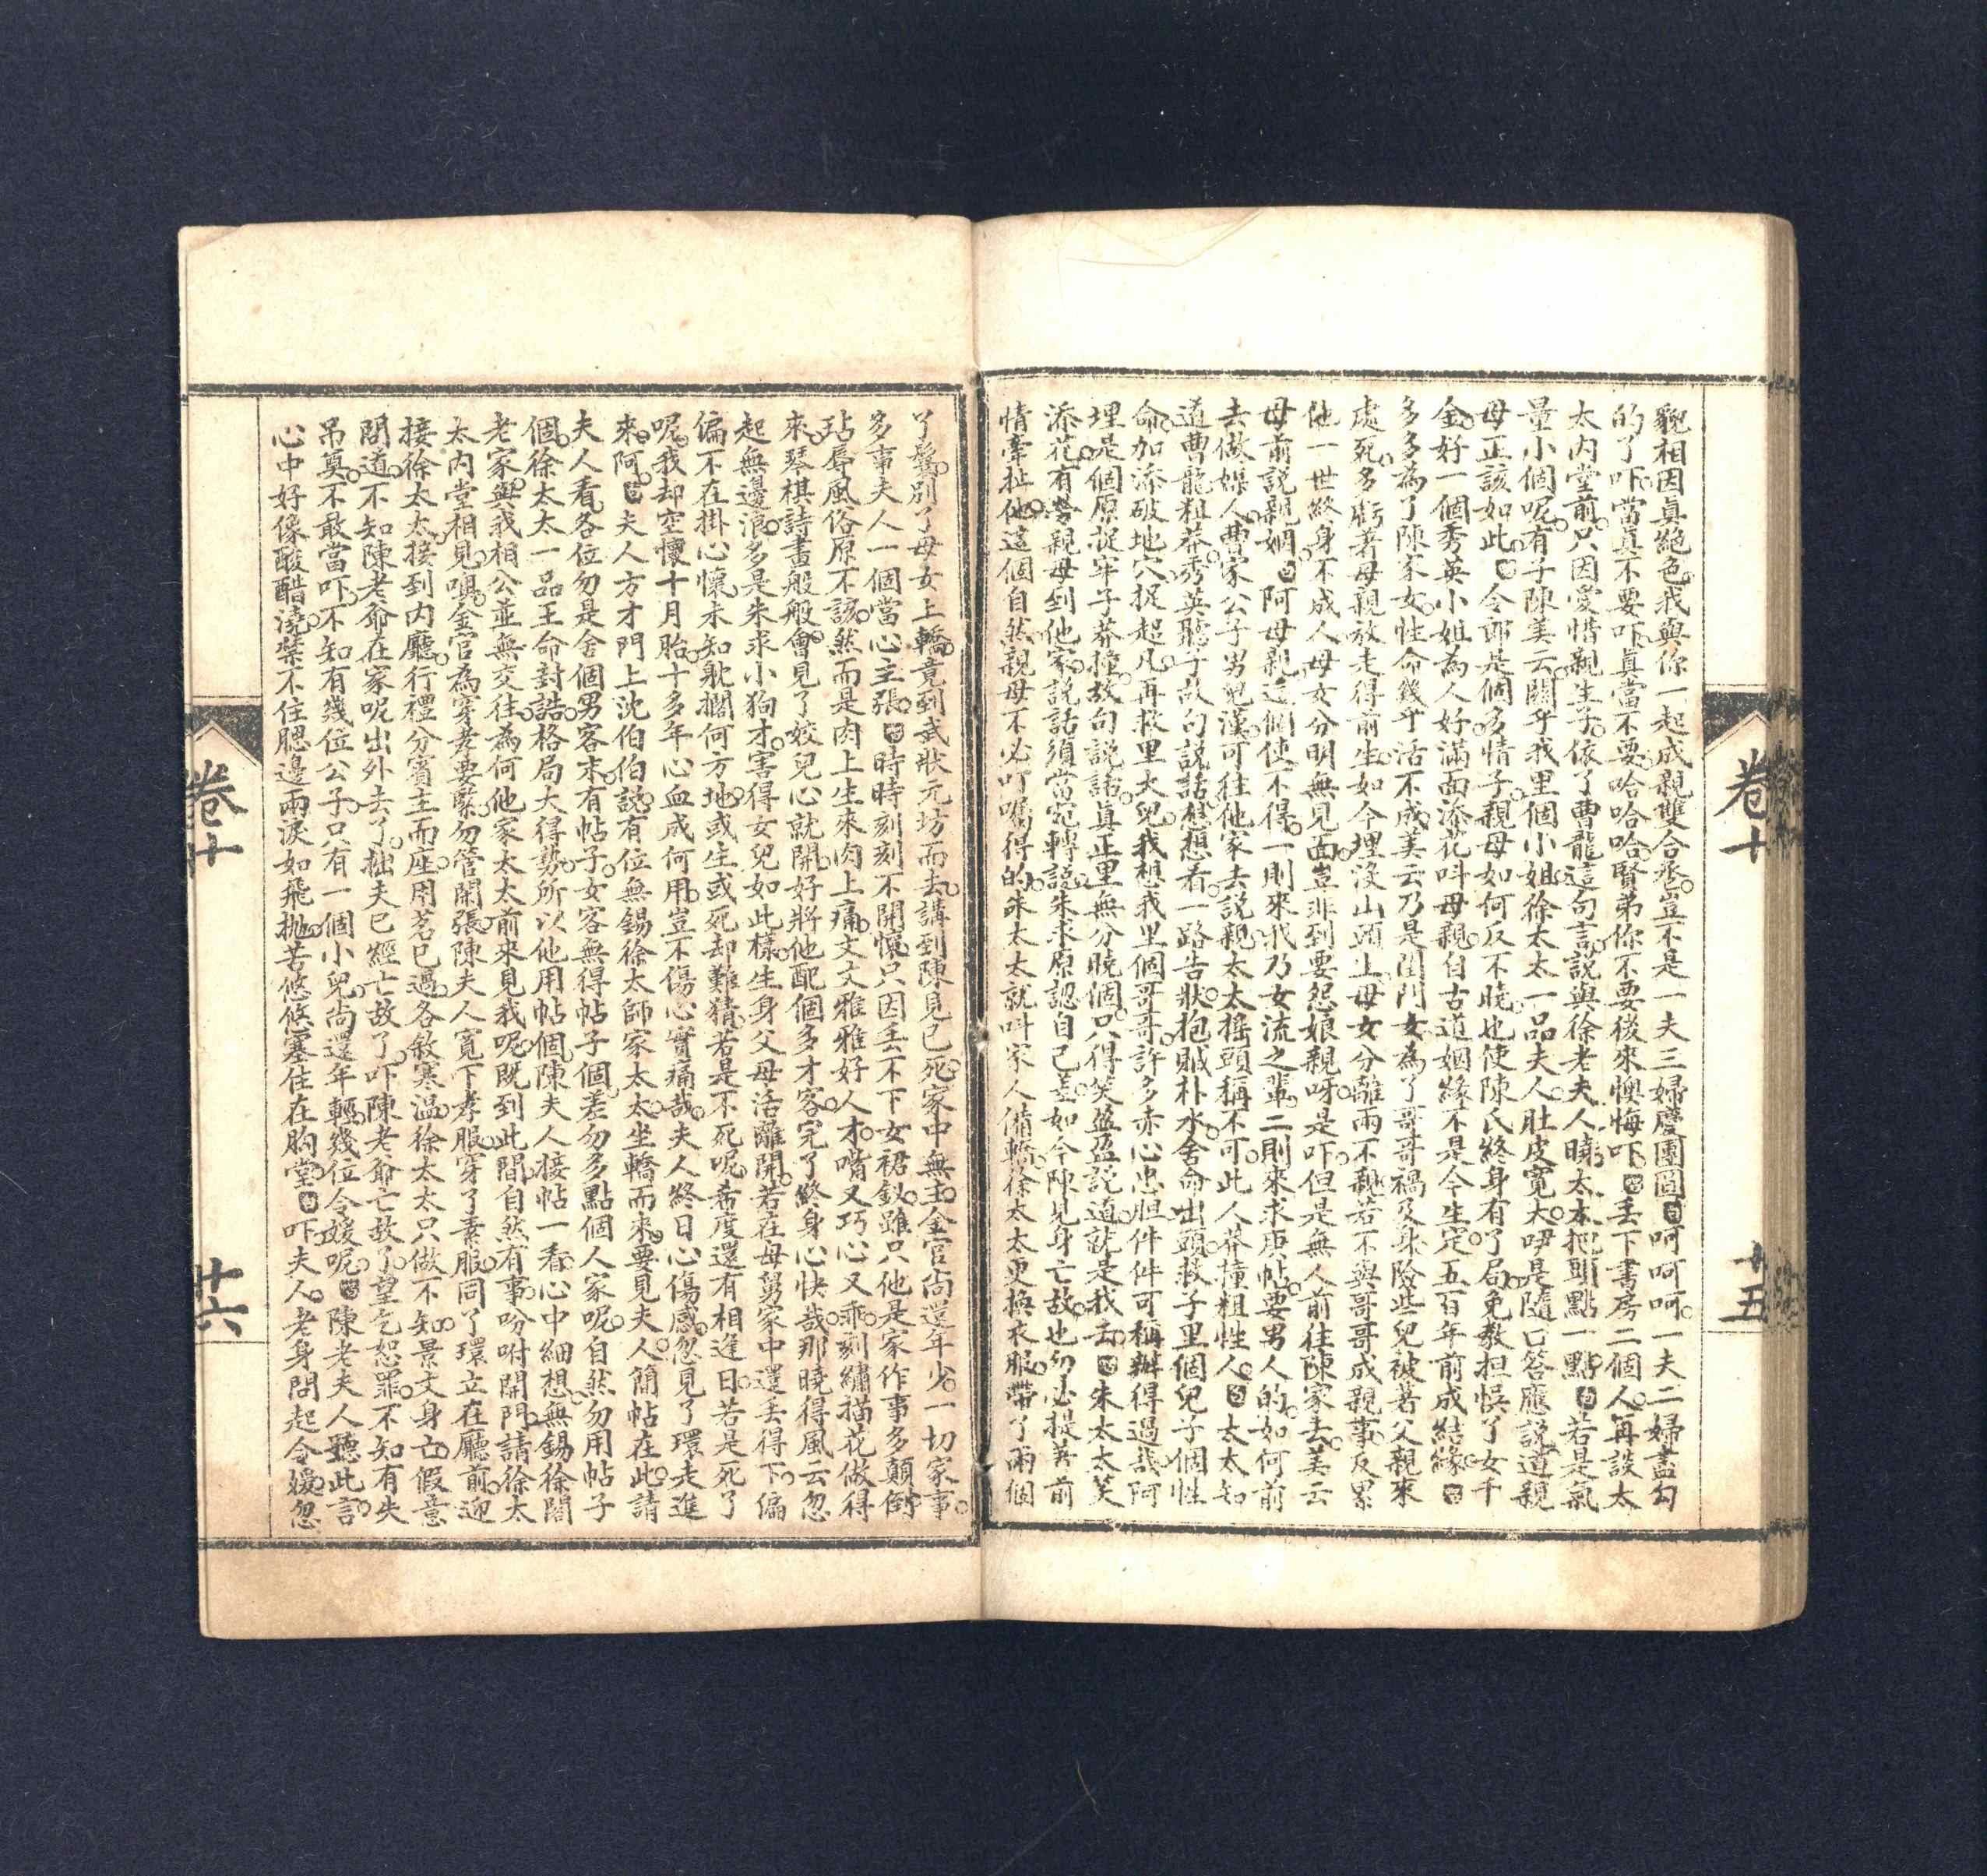 卷十
十五
貌相因真絕色我與你一起成親雙合卺豈不是一夫三婦慶團圓白呵呵呵一夫二婦盡勾
的了吓當真不要吓真當不要哈哈哈賢弟你不要後來懊悔吓白丢下書房二個人再談太
太內堂前只因愛惜親生子依了曹龍這句言說與徐老夫人曉太太把頭點一點白若是氣
量小個呢有子陳美云關乎我里個小姐徐太太一品夫人肚皮寬大咿是隨口答應說道親
母正該如此白令郎是個多情子親母如何反不曉也使陳氏終身有了局免教担悞了女千
金好一個秀英小姐為人好滿面添花呌母親自古道姻緣不是今生定五百年前成結緣白
多多為了陳家女性命幾乎活不成美云乃是閨門女為了哥哥禍及身險些兒被著父親來
處死多虧著母親放走得前生如今埋沒山頭上母女分離兩不親若不與哥哥成親事反累
他一世終身不成人母女分明無見面豈非到要怨娘親呀是吓但是無人前往陳家去美云
母前説親姻白阿母親這個使不得一則來我乃女流之輩二則來求庚帖要男人的如何前
去做媒人曹家公子男兒漢可往他家去説親太太搖頭稱不可此人莽撞粗性人白太太知
道曹龍粗莽秀英聽子故句説話想想看一路告狀抱賊朴水舍命出頭救子里個兒子個性
命加添破地穴捉超凡再救里大兒我想我里個哥哥許多赤心忠胆件件可稱辦得過哉阿
埋是個原捉牢子莽撞故句説話真正里無分曉個只得笑盈盈説道就是我去白朱太太笑
添花有勞親母到他家説話須當宛轉説朱求原認自己差如今陳見身亡故也勿必提著前
情牽扯他這個自然親母不必叮囑得的朱太太就呌家人備轎徐太太更換衣服帶了兩個
丫鬟別了母女上轎竟到武狀元坊而去講到陳見已死家中無主金官尚還年少一切家事
多事夫人一個當心主張白時時刻刻不開懷只因丢不下女裙釵雖只他是家作事多顛倒
玷辱風俗原不該然而是肉上生來肉上痛文文雅雅好人才嘴又巧心又乖刻繡描花做得
來琴棋詩畫般般會見了姣兒心就開好將他配個多才客完了終身心快哉那曉得風云忽
起無邊浪多是朱求小狗才害得女兒如此樣生身父母活離開若在母舅家中還丢得下偏
偏不在掛心懷未知躭擱何方地或生或死却難猜若是不死呢希度還有相逢日若是死了
呢我却空懷十月胎十多年心血成何用豈不傷心實痛哉夫人終日心傷感忽見了環走進
來阿白夫人方才門上沈伯伯説有位無錫徐太師家太太坐轎而來要見夫人簡帖在此請
夫人看各位勿是舍個男客末有帖子女客無得帖子個差勿多點個人家呢自然勿用帖子
個徐太太一品王命封誥格局大得勢所以他用帖個陳夫人接帖一看心中細想無錫徐閣
老家與我相公並無交往為何他家太太前來見我呢既到此間自然有事吩咐開門請徐太
太內堂相見嗄金官為穿孝要緊勿管閑張陳夫人寬下孝服穿了素服同了環立在廳前迎
接徐太太接到內廳行禮分賓主而座用茗已過各敘寒温徐太太只做不知景文身亡假意
問道不知陳老爺在家呢出外去了拙夫已經亡故了吓陳老爺亡故了望乞恕罪不知有失
吊奠不敢當吓不知有幾位公子只有一個小兒尚還年輕幾位令媛呢白陳老夫人聽此言
心中好像酸醋澆禁不住腮邊兩淚如飛拋苦悠悠塞住在胸堂白吓夫人老身問起令媛忽
卷十
十六